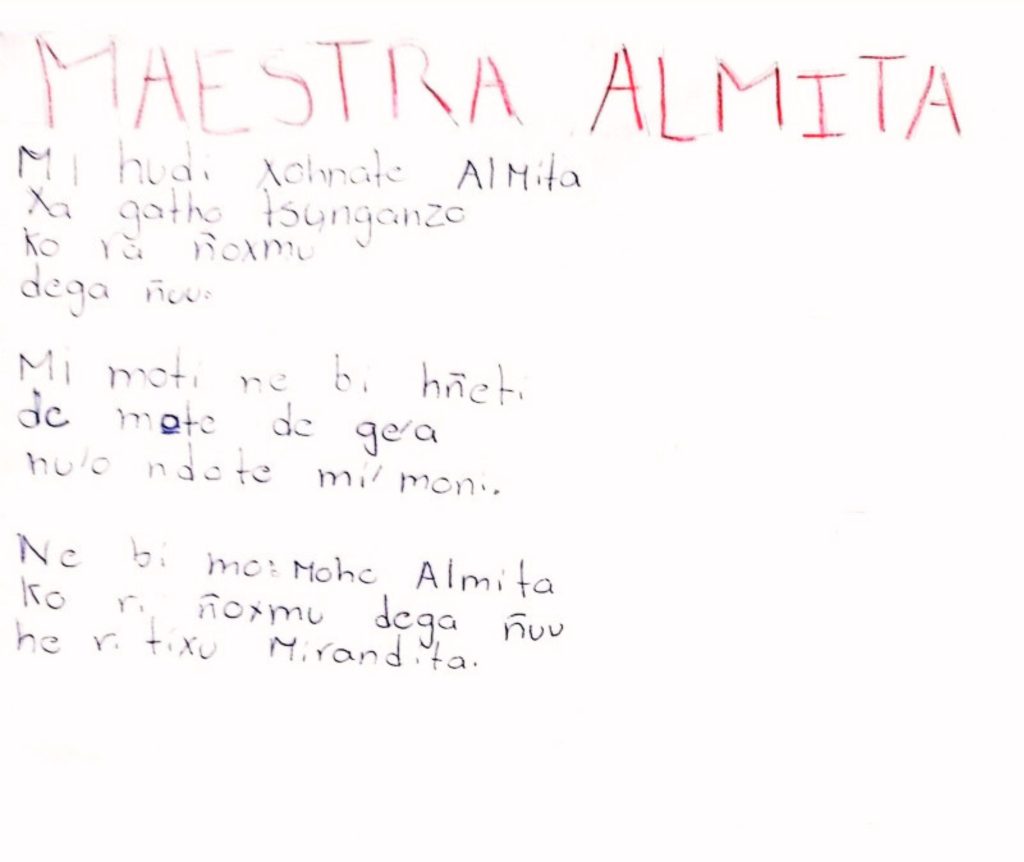 MAESTRA ALMITA
Mi hudi xohnate AlMita
Xa gatho tsunganzo
ko rä ñoxmu
dega ñuu.
Mi moti ne bi hñeti
de mote de ge'a
nu'o ndote mi' moni.
Ne bi mo: Mohe Almita
Ko ri ñoxmu dega ñuu
he ri tixu Mirandita.